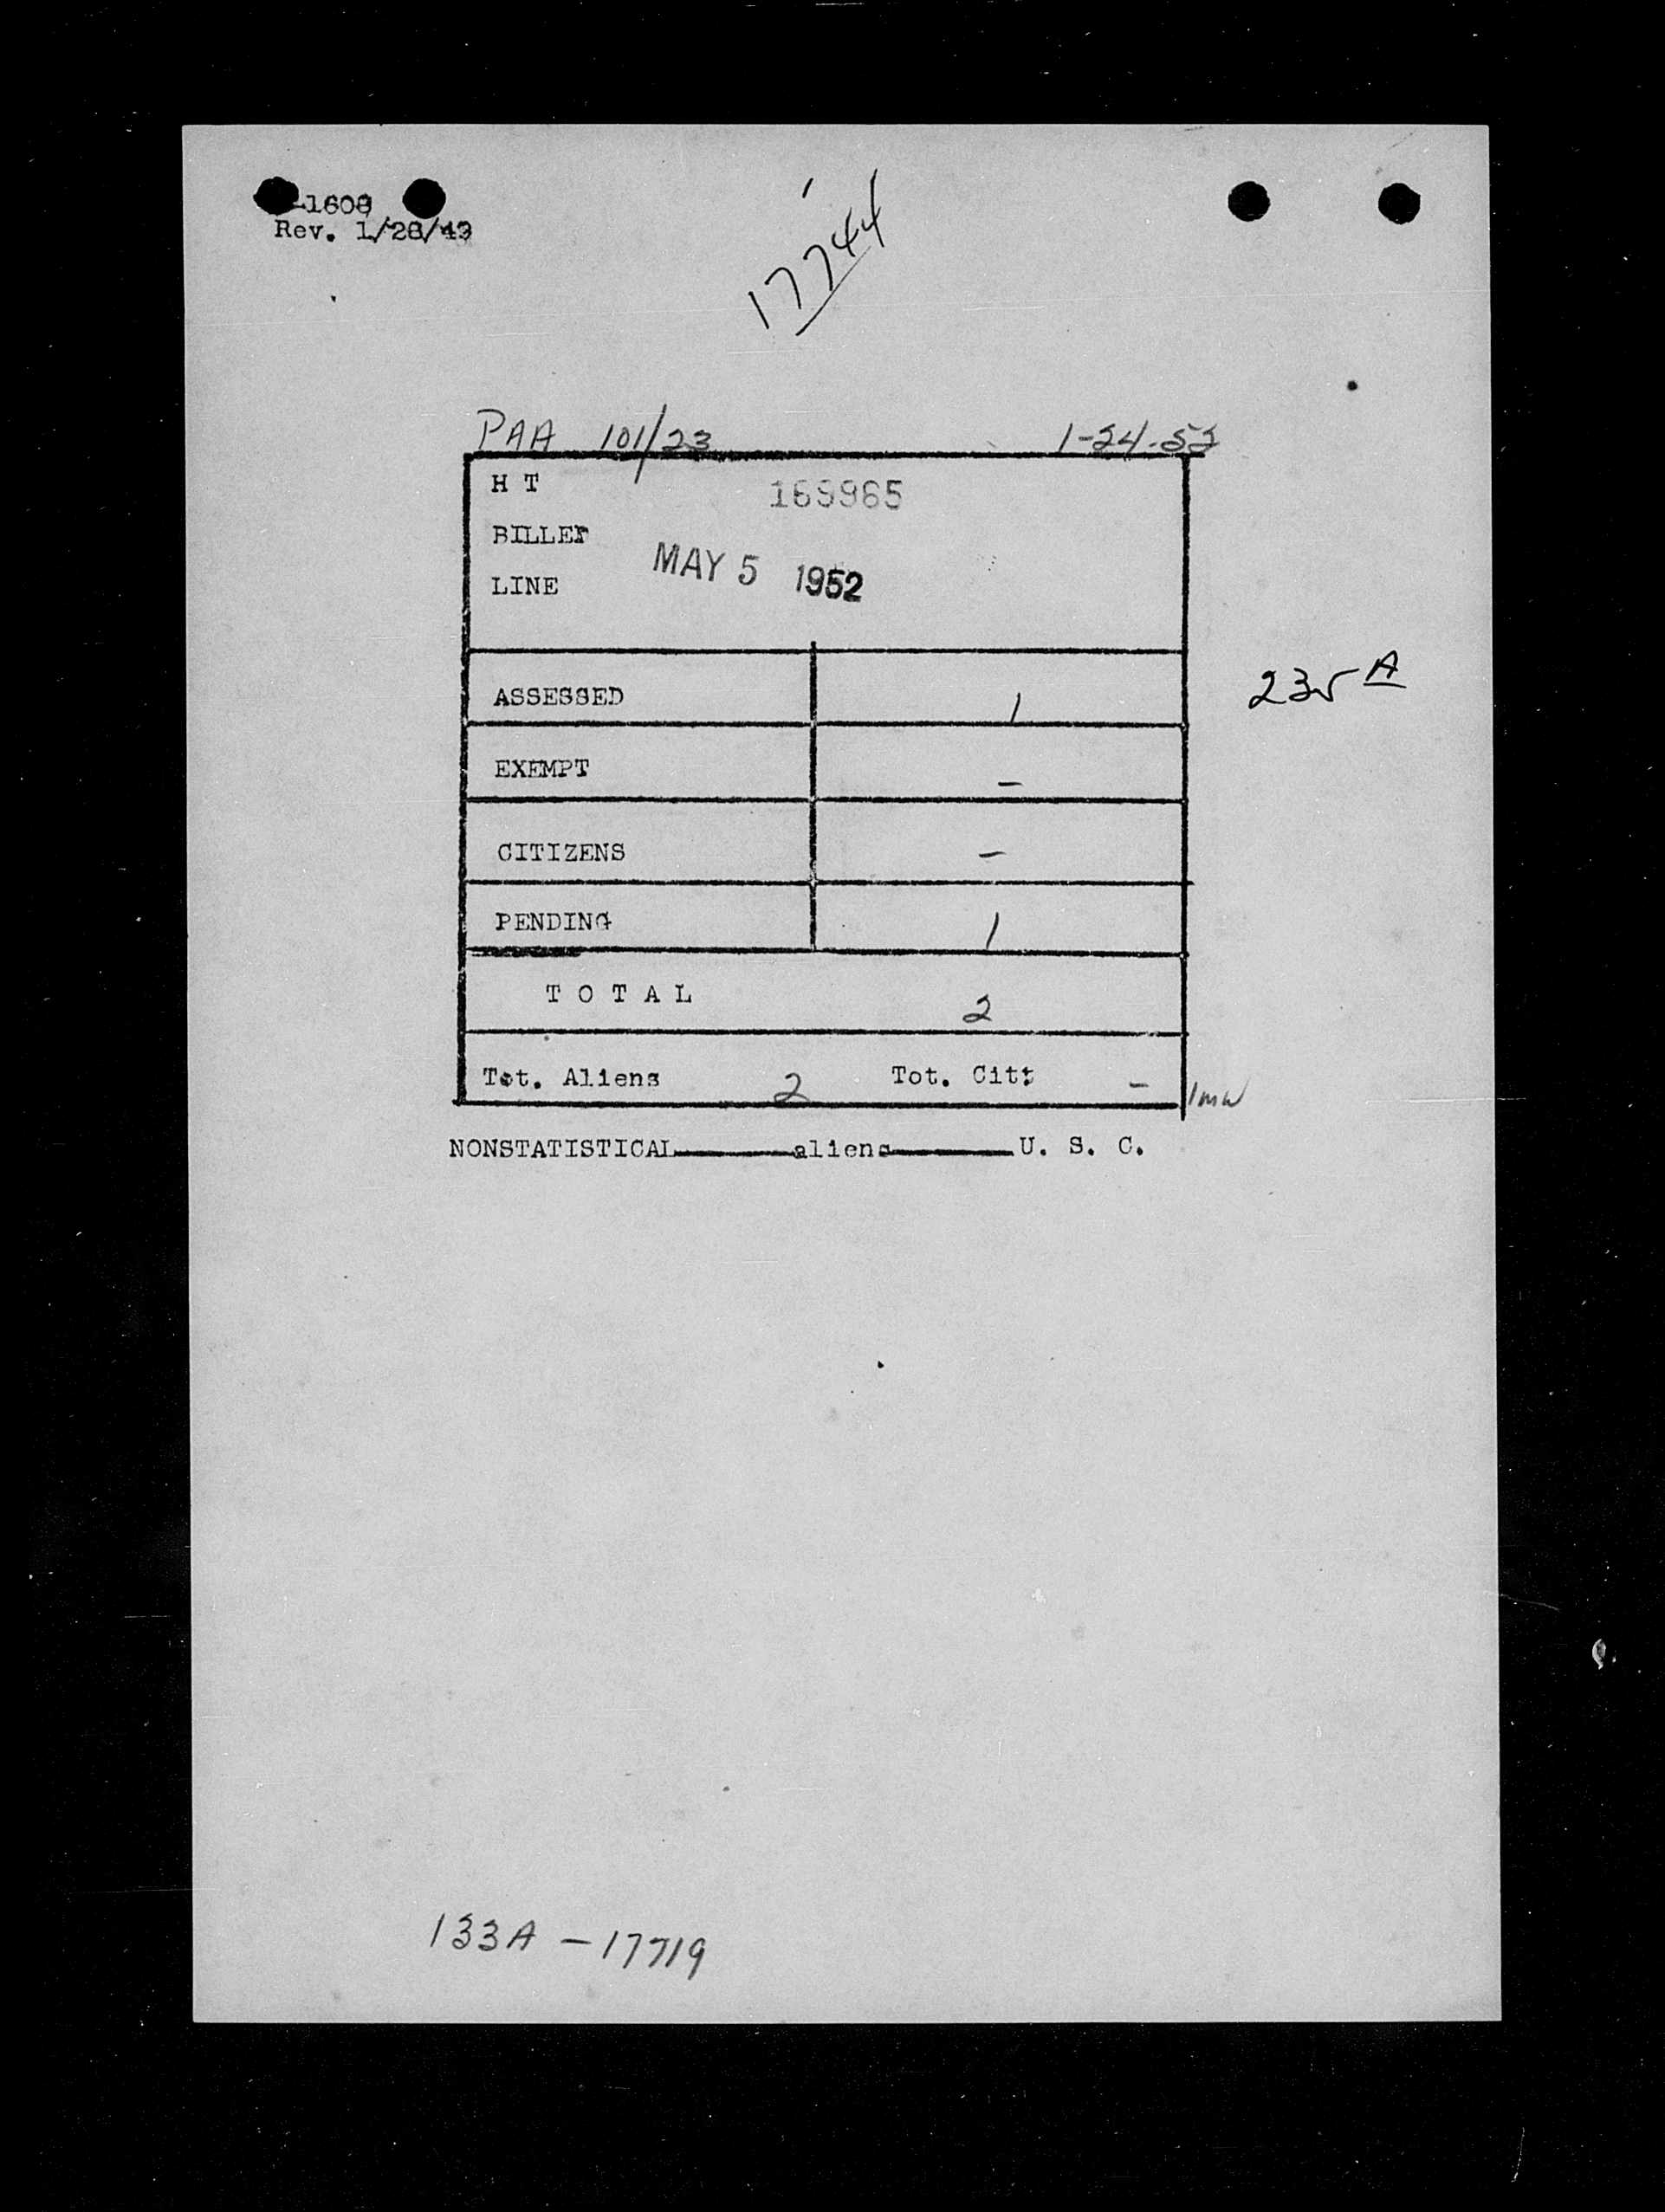 -1608
Rev. 1/28/49
17744
PAA 101/23 1-24-52
H T 169965
BILLET
LINE MAY 5 1952
ASSESSED 1
235 A
EXEMPT -
CITIZENS -
PENDING 1
T O T A L 2
Tot. Aliens 2 Tot. Citt -
NONSTATISTICAL aliens U. S. C.
133A - 17719